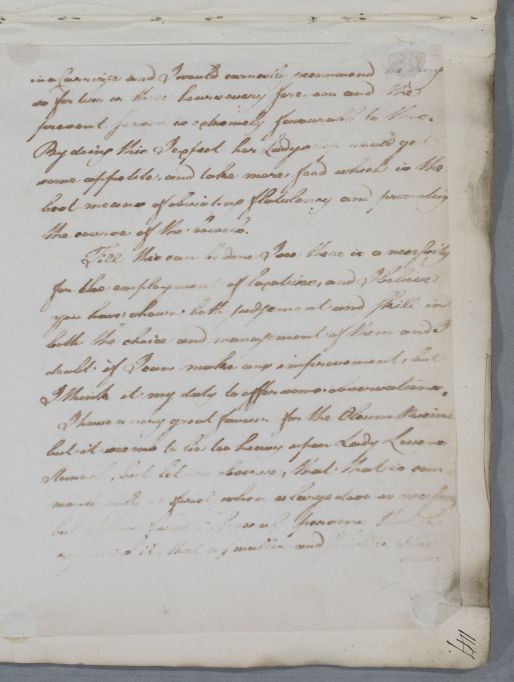 in a Carriage and I would earnestly recommend
so for two or three hours every forenoon and the
present Season is extremely favourable to this.
By doing this I expect her Ladyship would get
some appetite, and take more food which is the
best means of obviating flatulency and promoting
the course of the bowels.
Till this can be done I see there is a necessity
for the employment of laxatives, and I believe
you have shown both judgement and skill in
both the choice and management of them and I
doubt if I can make any improvement, but
I think it my duty to offer some observations.
I have a very great favour for the Oleum Ricini
but it seems to lie too heavy upon Lady
Stomach, but let me observe, that that is com
monly only at first when a large dose is necessary
but I have found in several persons
it, that a smaller and